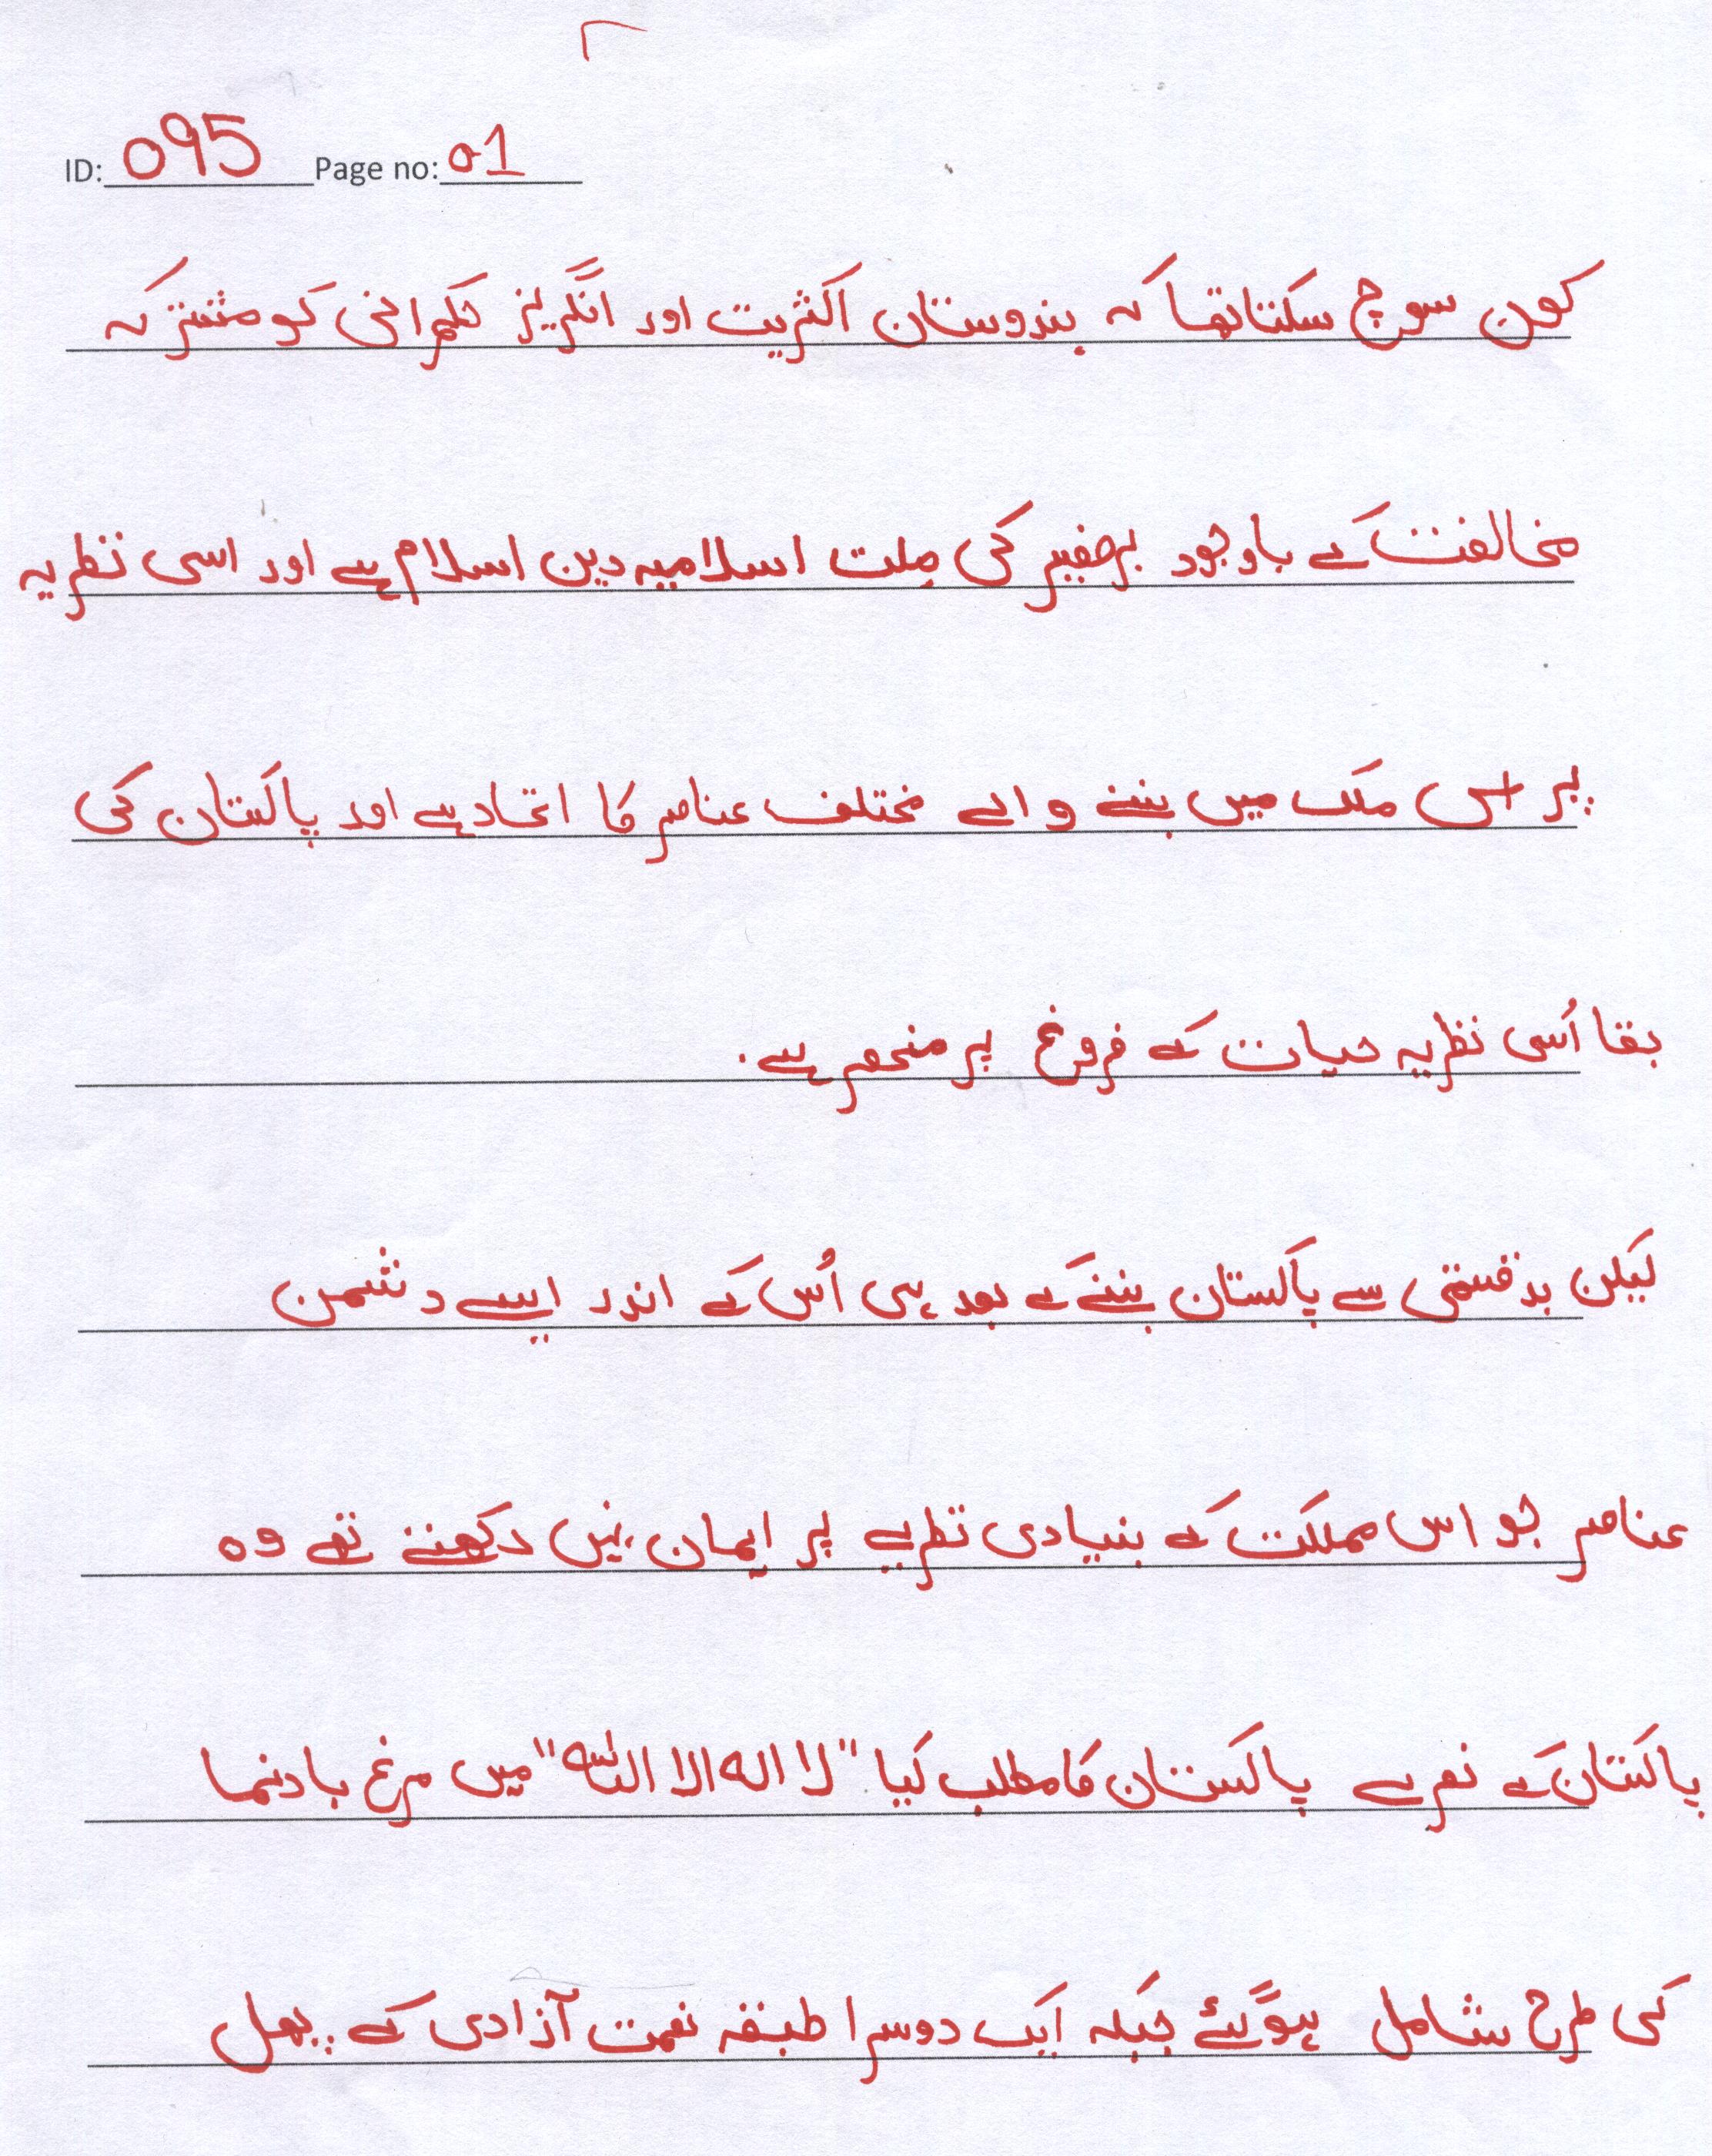 ID: 095 Page no: 01
کون سوچ سکتا تھا کہ ہندوستان اکثریت اور انگریز حکمرانی کو مشترکہ
مخالفت کے باوجود برصغیر کی ملت اسلامیہ دین اسلام ہے اور اسی نظریہ
پر اس ملک میں بسنے والے مختلف عناصر کا اتحاد ہے اور پاکستان کی
بقا اُسی نظریہ حیات کے فروغ پر منحصر ہے۔
لیکن بدقسمتی سے پاکستان بننے کے بعد ہی اُس کے اندر ایسے دشمن
عناصر جو اس مملکت کے بنیادی نظریے پر ایمان نہیں رکھتے تھے وہ
پاکستان کے نعرے پاکستان کا مطلب کیا "لا الہ الا اللہ" میں مرغ بادنما
کی طرح شامل ہوگئے جبکہ ایک دوسرا طبقہ نعمت آزادی کے پھل